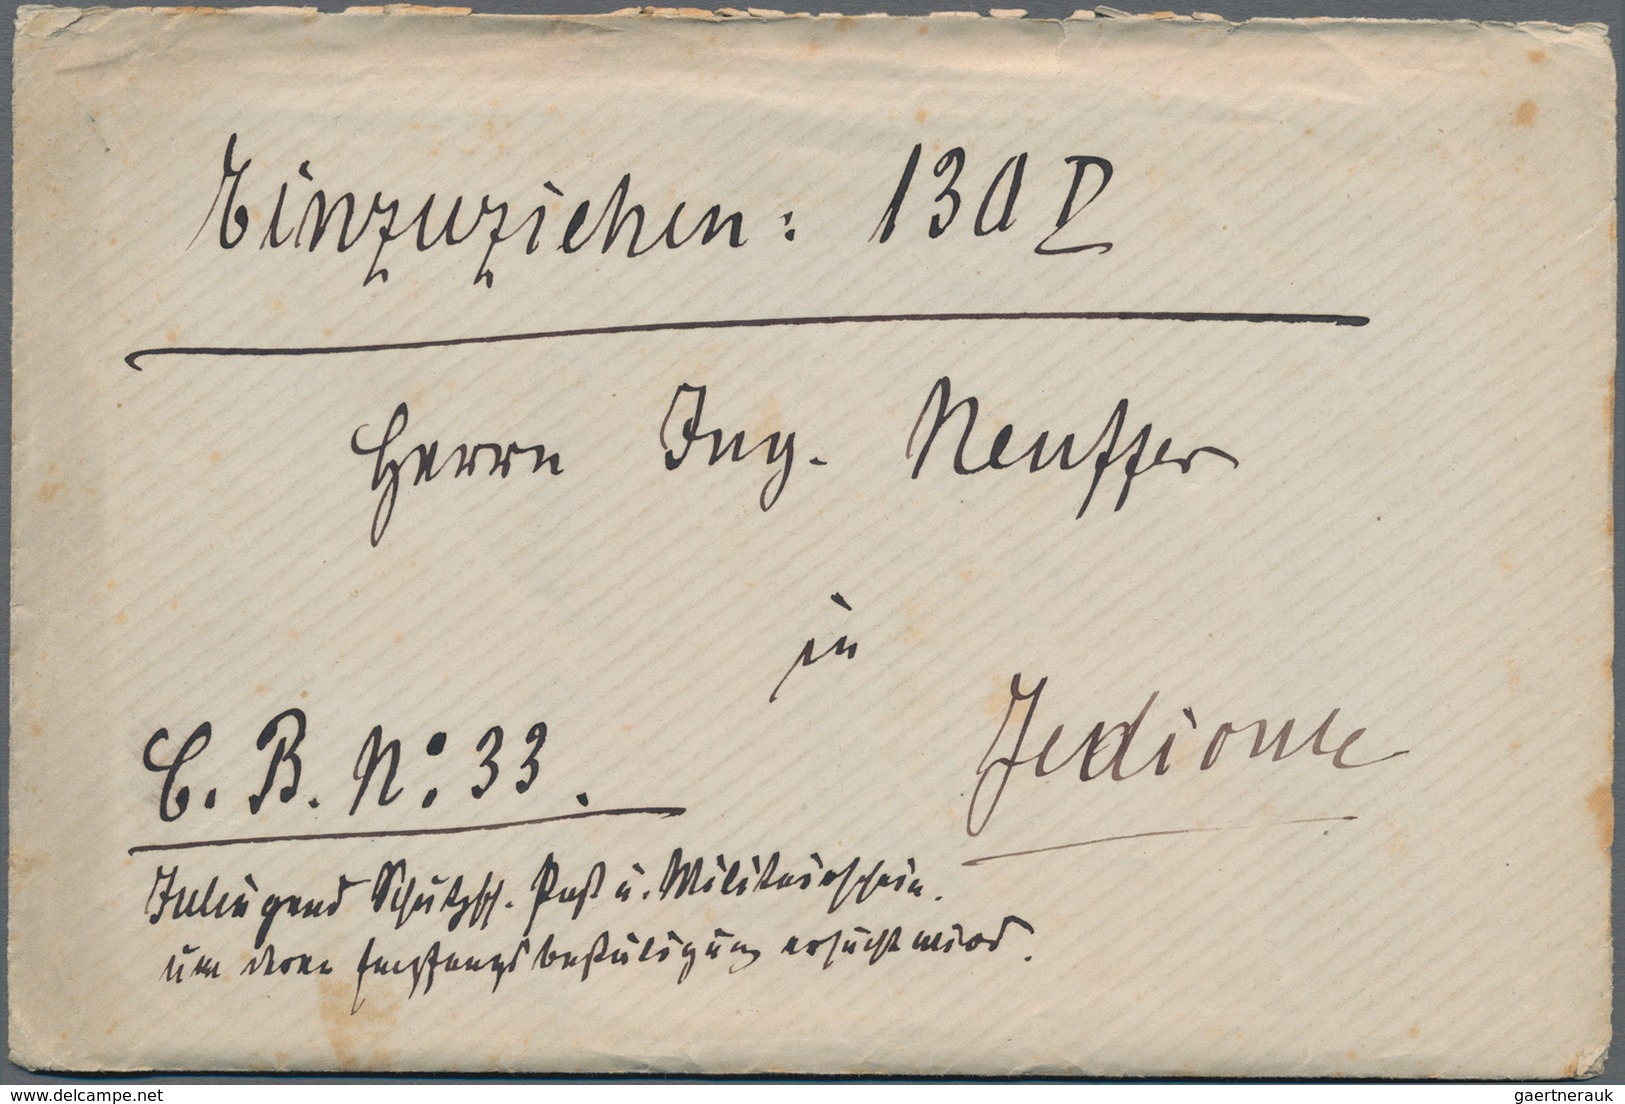 Einzuziehen: 130 P
Herrn Ing. Neuffer
in
Jedione
C. B. No: 33.
Inliegend Schutzsch. Paß u. Militairschein.
um deren Empfangsbestätigung ersucht wird.
www.delcampe.net
gaertnerauk